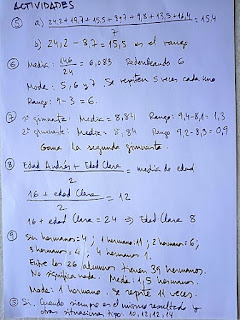 ACTIVIDADES
⑤ a) 24,2 + 19,7 + 15,5 + 8,7 + 9,8 + 13,5 + 16,4 / 7 = 15,4
b) 24,2 - 8,7 = 15,5 es el rango
⑥ Media: 146/24 = 6,083 Redondeando 6
Moda: 5, 6 y 7 Se repiten 5 veces cada uno
Rango: 9 - 3 = 6.
⑦ 1ª gimnasta: Media = 8,84 Rango: 9,4 - 8,1 = 1,3
2ª gimnasta: Media = 8,84 Rango 9,2 - 8,3 = 0,9
Gana la segunda gimnasta
⑧ Edad Andrés + Edad Clara / 2 = media de edad
16 + edad Clara / 2 = 12
16 + edad Clara = 24 ⇒ Edad Clara 8
⑨ Sin hermanos = 4; 1 hermano: 11; 2 hermanos = 6;
3 hermanos = 4; 4 hermanos 1.
Entre los 26 alumnos tienen 39 hermanos.
No significa nada. Media: 1,5 hermanos.
Moda: 1 hermano. Se repite 11 veces.
Si. Cuando siempre es el mismo resultado
otras situaciones tipo: 10, 12, 12, 14